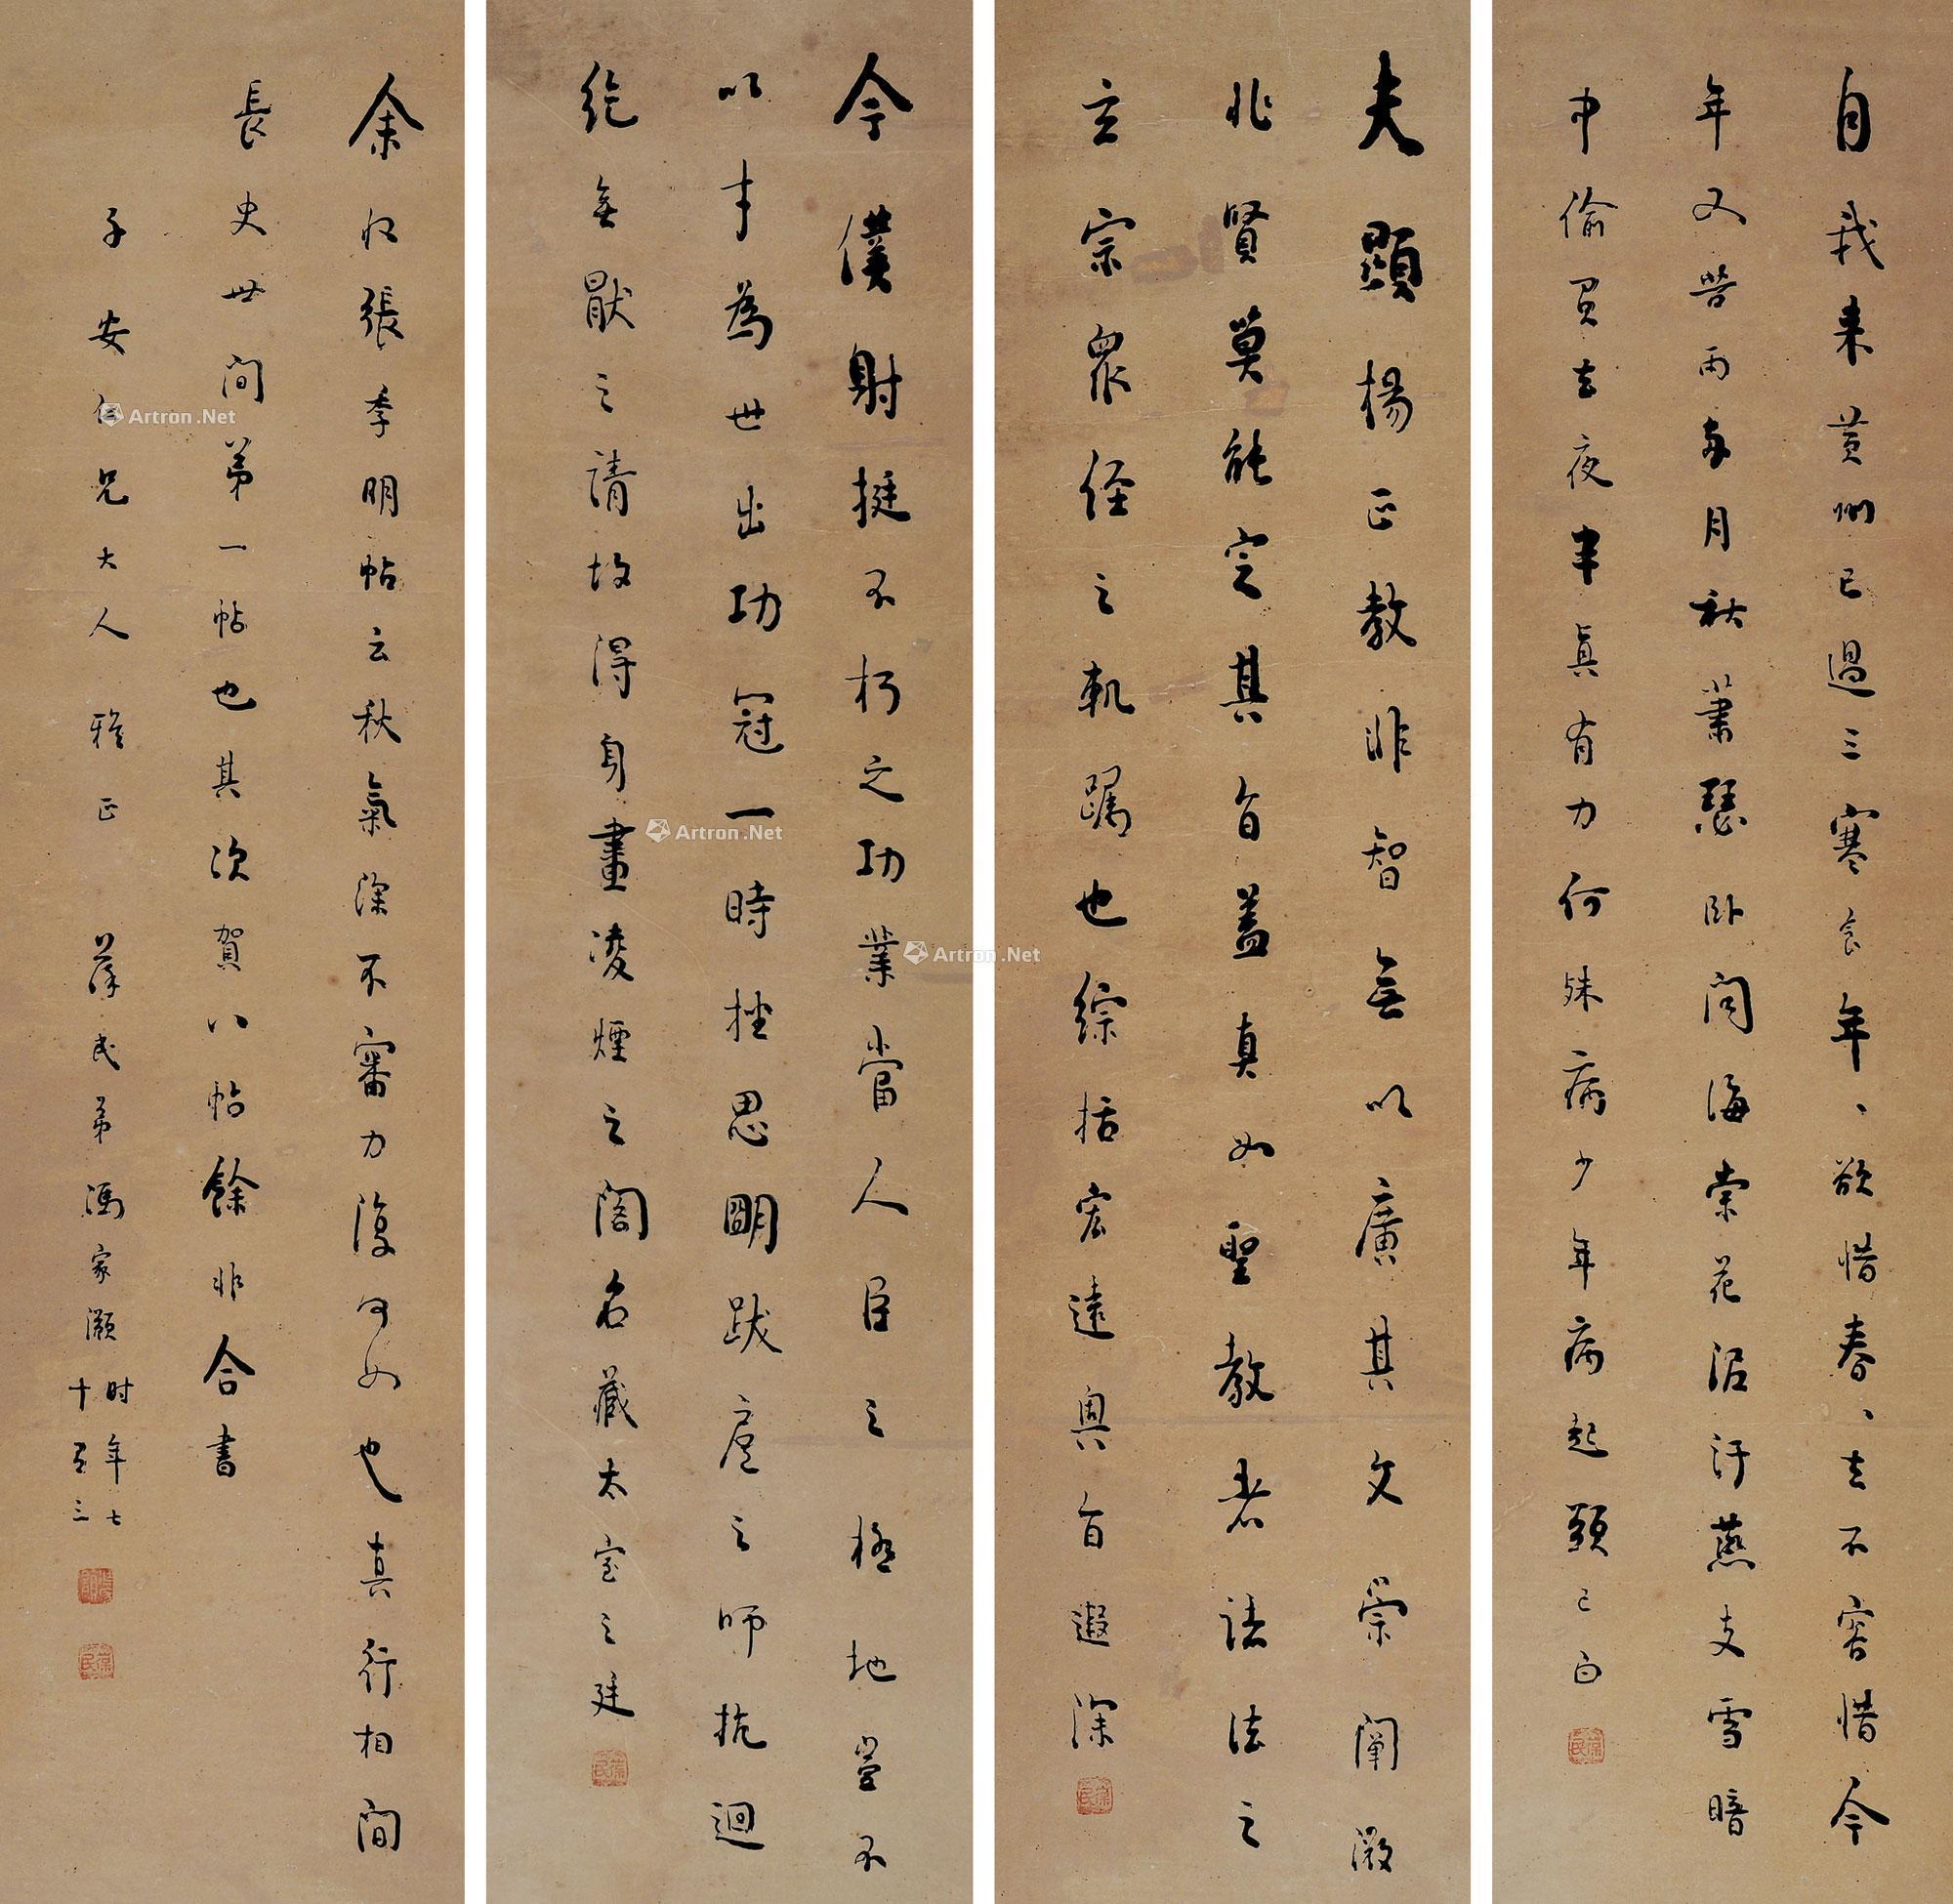 自我来黄州已過三寒食年、欲惜春、去不容惜今
年又苦雨兩月秋蕭瑟卧聞海棠花泥汙燕支雪暗
中偷負去夜半真有力何殊病少年病起頭已白
夫顯揚正教非智無以廣其文崇闡微
非賢莫能定其旨蓋真如聖教者諸法之
玄宗眾經之軌躅也綜括宏遠奥旨遐深
今僕射挺不朽之功業當人臣之極地豈不
以才為世出功冠一時挫思明跋扈之師抗迴
紇無厭之請故得身畫凌煙之閣名藏太室之廷
余收張季明帖云秋氣深不審力復何如也真行相間
長史世間第一帖也其次賀八帖餘非合書
子安仁兄大人雅正 葆民弟馮家灝時年七
十有三
葆民
葆民
葆民
Artron.Net
Artron.Net
Artron.Net